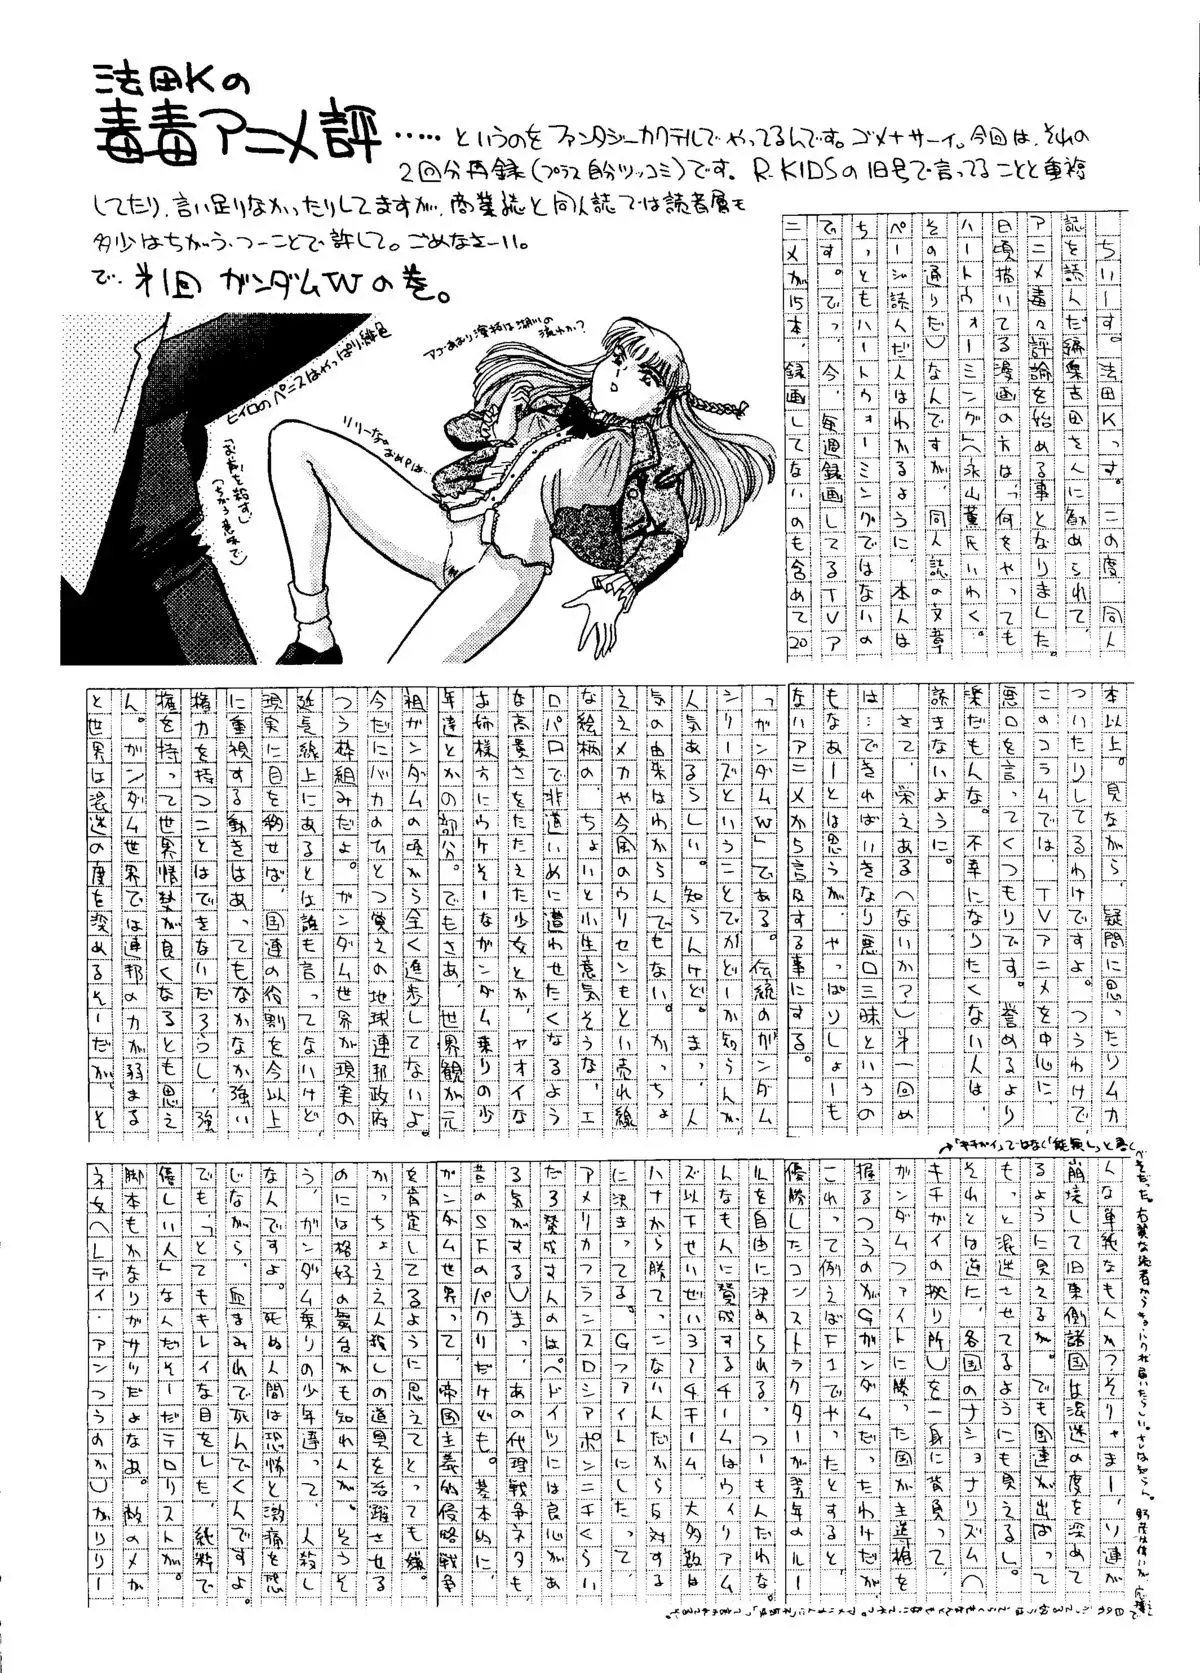 法田Kの
毒毒アニメ評
……というのをファンタジーカクテルでやってるんです。ゴメナサーイ。今回は、それの
2回分再録(プラス自分ツッコミ)です。R.KIDSの旧号で言ってることと重複
してたり、言い足りなかったりしてますが、商業誌と同人誌では読者層も
多少はちがう、つーことで許して。ごめなさーい。
で、第1回 ガンダムWの巻。
ちいーす。法田Kっす。この度、同人
誌を読んだ編集古田さんに勧められて、
アニメ毒々評論を始める事となりました。
日頃描いてる漫画の方は、「何をやっても
ハートウォーミング」(永山薫氏いわく。
その通りだ)なんですが、同人誌の文章
ページ読んだ人はわかるように、本人は
ちっともハートウォーミングではないの
です。でっ、今、毎週録画してるTVア
ニメが15本、録画してないのも含めて20
本以上。見ながら、疑問に思ったりムカ
ついたりしてるわけですよ。つうわけで
このコラムでは、TVアニメを中心に、
悪口を言ってくつもりです。誉めるより
楽だもんな。不幸になりたくない人は、
読まないように。
さて、栄えある(ないか?)第一回め
は…できればいきなり悪口三昧というの
もなあーとは思うが、やっぱりしょーも
ないアニメから言及する事にする。
「ガンダムW」である。伝統のガンダム
シリーズということでかどーか知らんが、
人気あるらしい。知らんけど。まっ、人
気の由来はわからんでもない。かっちょ
ええメカや今風のウリセンもとい売れ線
な絵柄の、ちょいと小生意気そうな、エ
ロパロで非道いめに遭わせたくなるよう
な高貴さをたたえた少女とか、ヤオイな
お姉様方にウケそーなガンダム乗りの少
年達とかの部分。でもさあ、世界観が元
祖ガンダムの頃から全く進歩してないよ。
今だにバカのひとつ覚えの地球連邦政府
つう枠組みだよ。ガンダム世界が現実の
延長線上にあるとは誰も言ってないけど、
現実に目を納せば、国連の役割を今以上
に重視する動きはあってもなかなか強い
権力を持つことはできないだろうし、強
権を持って世界情勢が良くなるとも思え
ん。ガンダム世界では連邦の力が弱まる
と世界は混迷の度を深めるそーだが。そ
んな単純なもんかつ。そりゃまー、ソ連が
崩壊して旧東側諸国は混迷の度を深めて
るように見えるが。でも国連が出ばって
もっと混迷させてるようにも見えるし。
それとは逆に、各国のナショナリズム(
キチガイの拠り所)を一身に背負って、
ガンダムファイトに勝った国が主導権を
握るつうのがGガンダムだったわけだが
これって例えばF1でやったとすると、
優勝したコンストラクターが翌年のルー
ルを自由に決められる、つーもんだわな。
んなもんに賛成するチームはウィリアム
ズ以下せいぜい3~4チーム、大多数は
ハナから勝てっこないんだから反対する
に決まってる。Gファイトにしたって、
アメリカフランスロシアポンニチくらい
だろ賛成すんのは(ドイツには良心があ
る気がする)。まっ、あの代理戦争ネタも
昔のSFのパクリだけども。基本的に、
ガンダム世界って、帝国主義的侵略戦争
を肯定してるように思えてとっても嫌。
かっちょええ人殺しの道具を活躍させる
のには格好の舞台かも知れんが。そうそ
う、ガンダム乗りの少年達って、人殺し
な人ですよ。死ぬ人間は恐怖と激痛を感
じながら、血まみれで死んでくんですよ。
でも、「とてもキレイな目をした、純粋で
優しい人」なんだそーだテロリストが。
脚本もかなりガサツだよなあ。敵のメガ
ネ女(レディ・アンつうのか)がリリー
→「キチガイ」ではなく「能無し」と書く